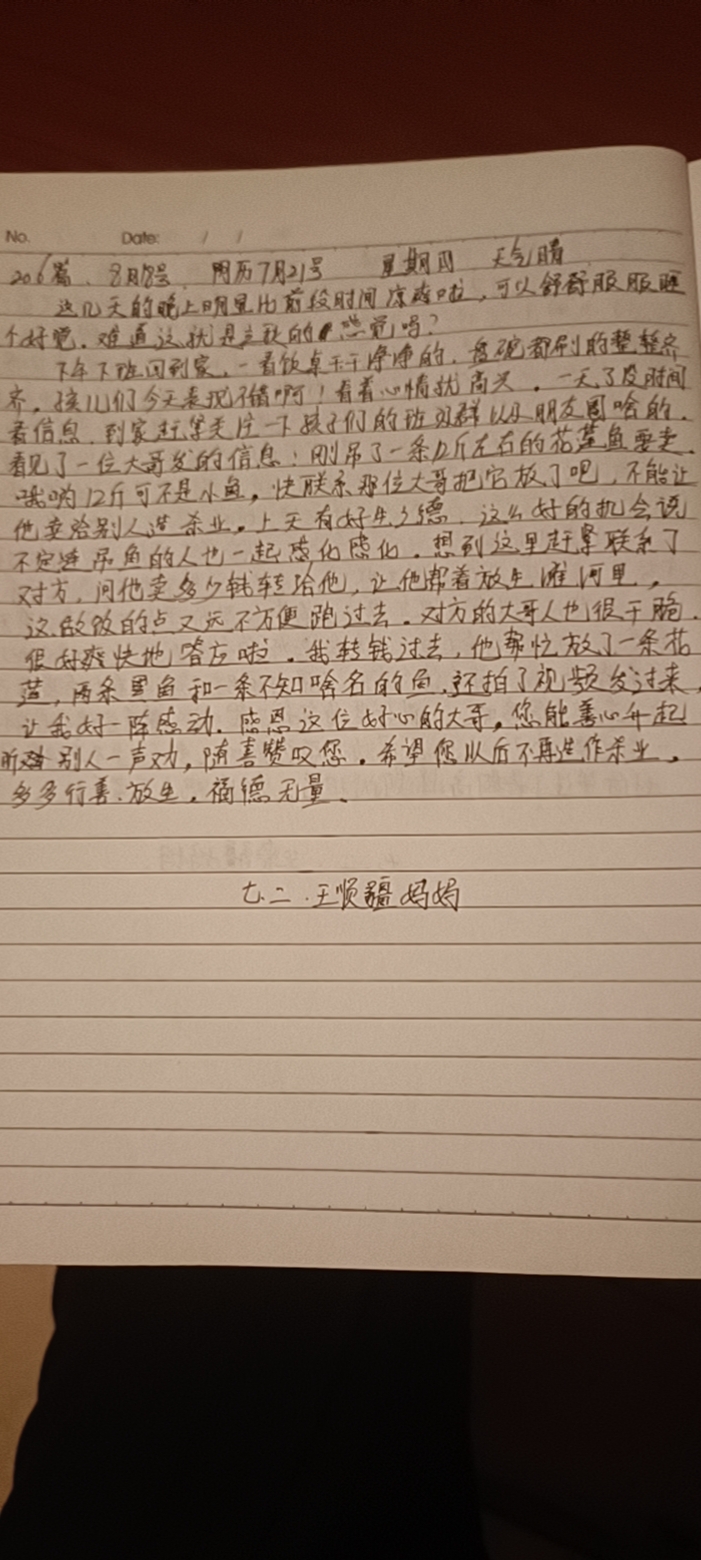 No. Date: / /
206篇、8月18号 阴历7月21号 星期四 天气晴
这几天的晚上明显比前段时间凉爽啦，可以舒舒服服睡
个好觉。难道这就是立秋的感觉吗？
下午下班回到家，一看饭桌干干净净的，盘碗都刷的整整齐
齐，孩儿们今天表现不错啊！看着心情就高兴。一天了没时间
看信息，到家赶紧先点一下孩子们的班级群以及朋友圈啥的，
看见了一位大哥发的信息：刚吊了一条12斤左右的花莲鱼要卖。
哦哟12斤可不是小鱼，快联系那位大哥把它放了吧，不能让
他卖给别人造杀业。上天有好生之德，这么好的机会说
不定连吊鱼的人也一起感化感化。想到这里赶紧联系了
对方，问他卖多少钱转给他，让他帮着放生河里，
这的点又远不方便跑过去。对方的大哥人也很干脆，
很好爽快地答应啦。我转钱过去，他帮忙放了一条花
莲，两条黑鱼和一条不知啥名的鱼，还拍了视频发过来，
让我好一阵感动。感恩这位好心的大哥，您能善心升起
听别人一声劝，随喜赞叹您。希望您以后不再造作杀业，
多多行善、放生，福德无量。
七.二.王顺疆妈妈